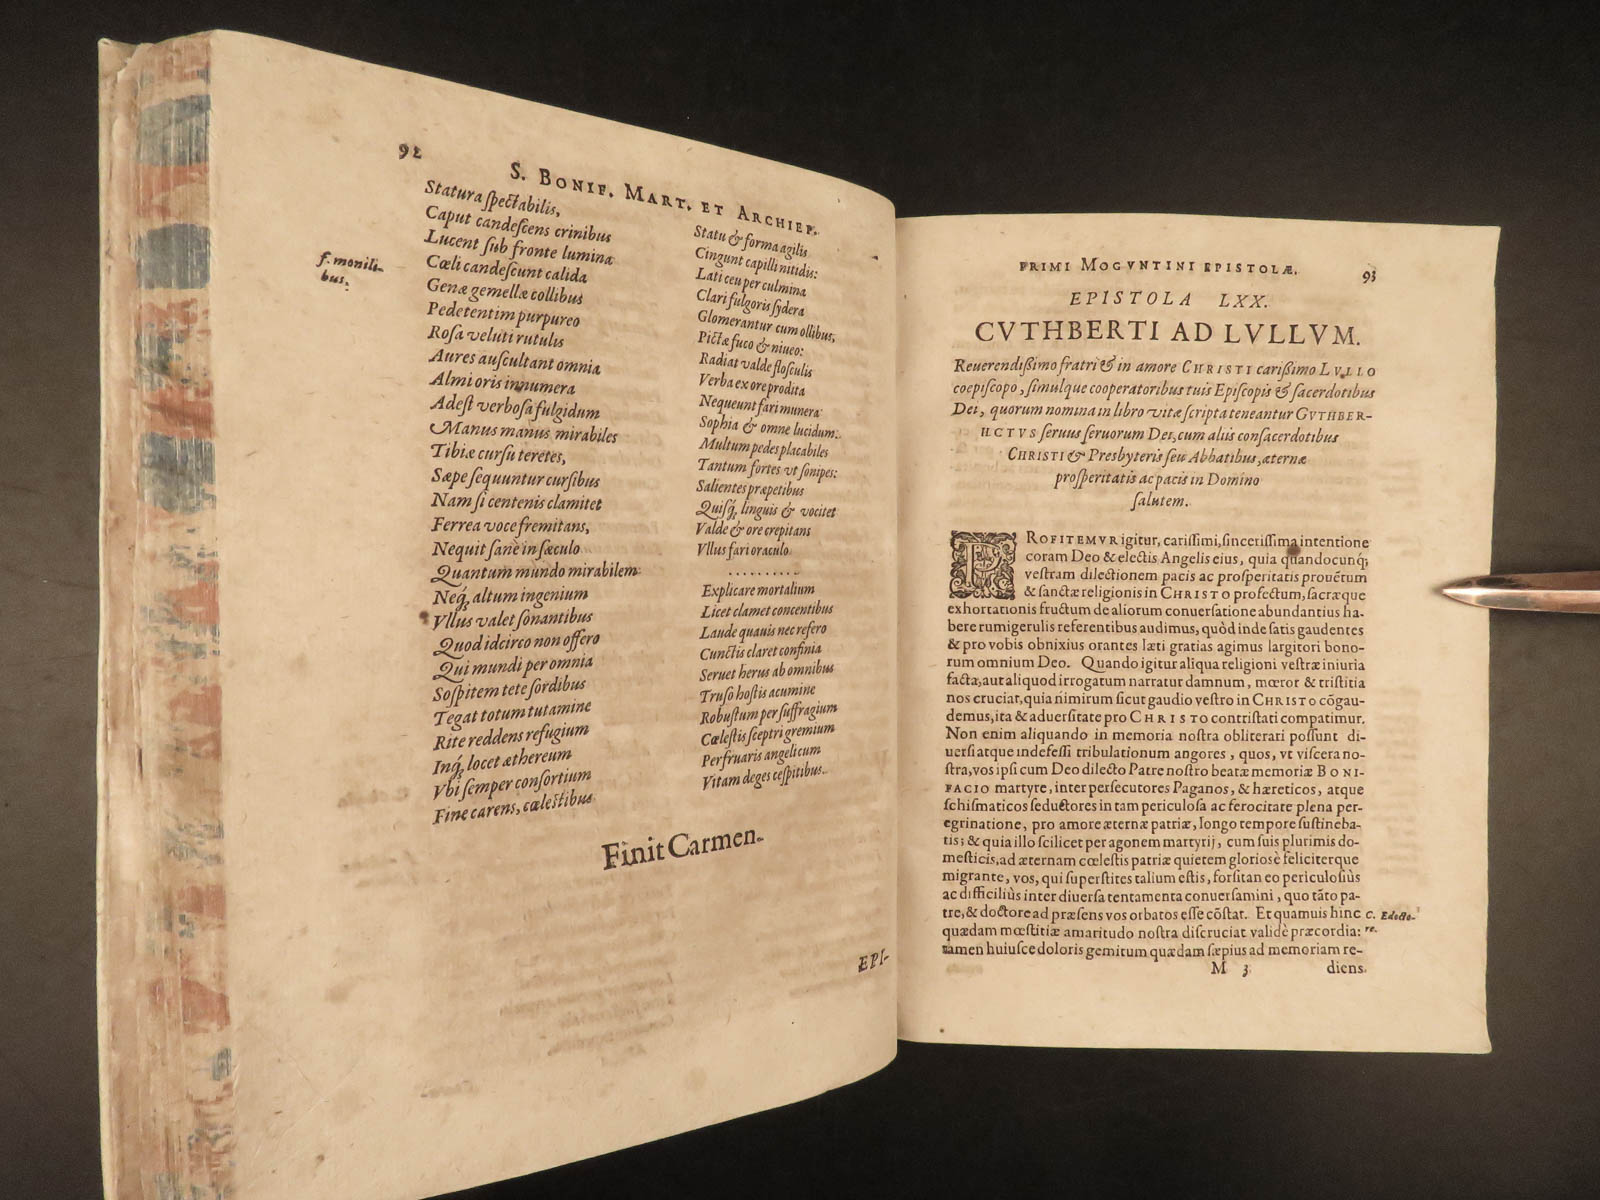 92
S. BONIF. MART. ET ARCHIEP.
f. monili-
bus.
Statura spectabilis,
Caput candescens crinibus
Lucent sub fronte lumina
Cœli candescunt calida
Genæ gemellæ collibus
Pedetentim purpureo
Rosa veluti rutulis
Aures auscultant omnia
Almi oris innumera
Adest verbosa fulgidum
Manus manus mirabiles
Tibiæ cursu teretes,
Sæpe sequuntur cursibus
Nam si centenis clamitet
Ferrea voce fremitans,
Nequit sane in sæculo
Quantum mundo mirabilem
Neq́; altum ingenium
Vllus valet sonantibus
Quod idcirco non offero
Qui mundi per omnia
Sospitem te te sordibus
Tegat totum tutamine
Rite reddens refugium
Inq́; locet æthereum
Vbi semper consortium
Fine carens, cælestibus
Statu & forma agilis
Cingunt capilli nitidis:
Lati ceu per culmina
Clari fulgoris sydera
Glomerantur cum ollibus,
Pictæ fuco & niueo:
Radiat valde flosculis
Verba ex ore prodita
Nequeunt fari munera
Sophia & omne lucidum:
Multum pedes placabiles
Tantum fortes vt sonipes:
Salientes præpetibus
Quisq́; linguis & vocitet
Valde & ore crepitans
Vllus fari oraculo
..........
Explicare mortalium
Licet clamet concentibus
Laude quauis nec refero
Cunctis claret confinia
Seruet herus ab omnibus
Truso hostis acumine
Robustum per suffragium
Cælestis sceptri gremium
Perfruaris angelicum
Vitam deges cespitibus.
Finit Carmen.
EPI-
PRIMI MOGVNTINI EPISTOLÆ. 93
EPISTOLA LXX.
CVTHBERTI AD LVLLVM.
Reuerendissimo fratri & in amore CHRISTI carissimo LVLLO
coepiscopo, simulque cooperatoribus tuis Episcopis & sacerdotibus
Dei, quorum nomina in libro vitæ scripta teneantur GVTHBER-
HCTVS seruus seruorum Dei, cum aliis consacerdotibus
CHRISTI & Presbyteris seu Abbatibus, æternæ
prosperitatis ac pacis in Domino
salutem.
PROFITEMVR igitur, carissimi, sincerissima intentione
coram Deo & electis Angelis eius, quia quandocunq́;
vestram dilectionem pacis ac prosperitatis prouẽtum
& sanctæ religionis in CHRISTO profectum, sacræque
exhortationis fructum de aliorum conuersatione abundantius ha-
bere rumigerulis referentibus audimus, quòd inde satis gaudentes
& pro vobis obnixius orantes læti gratias agimus largitori bono-
rum omnium Deo. Quando igitur aliqua religioni vestræ iniuria
facta, aut aliquod irrogatum narratur damnum, mœror & tristitia
nos cruciat, quia nimirum sicut gaudio vestro in CHRISTO cõgau-
demus, ita & aduersitate pro CHRISTO contristati compatimur.
Non enim aliquando in memoria nostra obliterari possunt di-
uersi atque indefessi tribulationum angores, quos, vt viscera no-
stra, vos ipsi cum Deo dilecto Patre nostro beatæ memoriæ BONI-
FACIO martyre, inter persecutores Paganos, & hæreticos, atque
schismaticos seductores in tam periculosa ac ferocitate plena per-
egrinatione, pro amore æternæ patriæ, longo tempore sustineba-
tis; & quia illo scilicet per agonem martyrij, cum suis plurimis do-
mesticis, ad æternam cœlestis patriæ quietem gloriosè feliciterque
migrante, vos, qui superstites talium estis, forsitan eo periculosiùs
ac difficiliùs inter diuersa tentamenta conuersamini, quo tãto pa-
tre, & doctore ad præsens vos orbatos esse cõstat. Et quamuis hinc
quædam mœstitiæ amaritudo nostra discruciat validè præcordia:
tamen huiusce doloris gemitum quædam sæpius ad memoriam re-
c. Edocto-
re.
M 3 diens